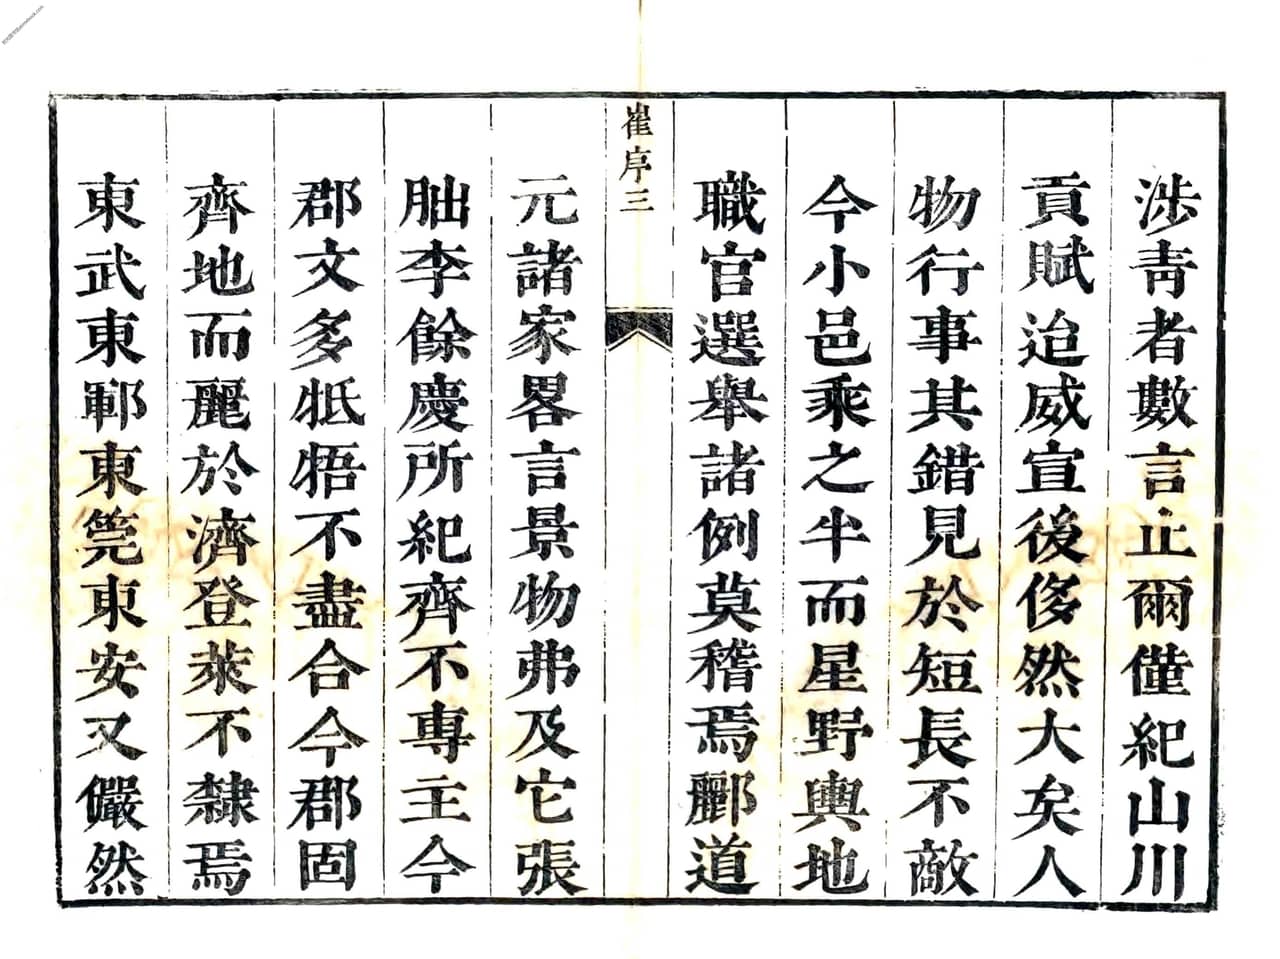 涉青者數言止爾僅紀山川
貢賦迨威宣後侈然大矣人
物行事其錯見於短長不敵
今小邑乘之半而星野輿地
職官選舉諸例莫稽焉酈道
崔序三
元諸家畧言景物弗及它張
朏李餘慶所紀齊不專主今
郡文多牴牾不盡合今郡固
齊地而麗於濟登萊不隸焉
東武東鄆東筦東安又儼然